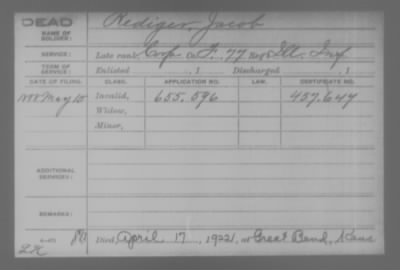 DEAD
NAME OF SOLDIER: Rediger, Jacob
SERVICE: Late rank, Corp Co. F, 77 Reg't Ill. Inf
TERM OF SERVICE: Enlisted , 1 Discharged , 1
DATE OF FILING. CLASS. APPLICATION NO. LAW. CERTIFICATE NO.
1888 May 10 Invalid, 655.096 457.647
Widow,
Minor,
ADDITIONAL SERVICES:
REMARKS:
Died, April 17, 1922, at Great Bend, Kans